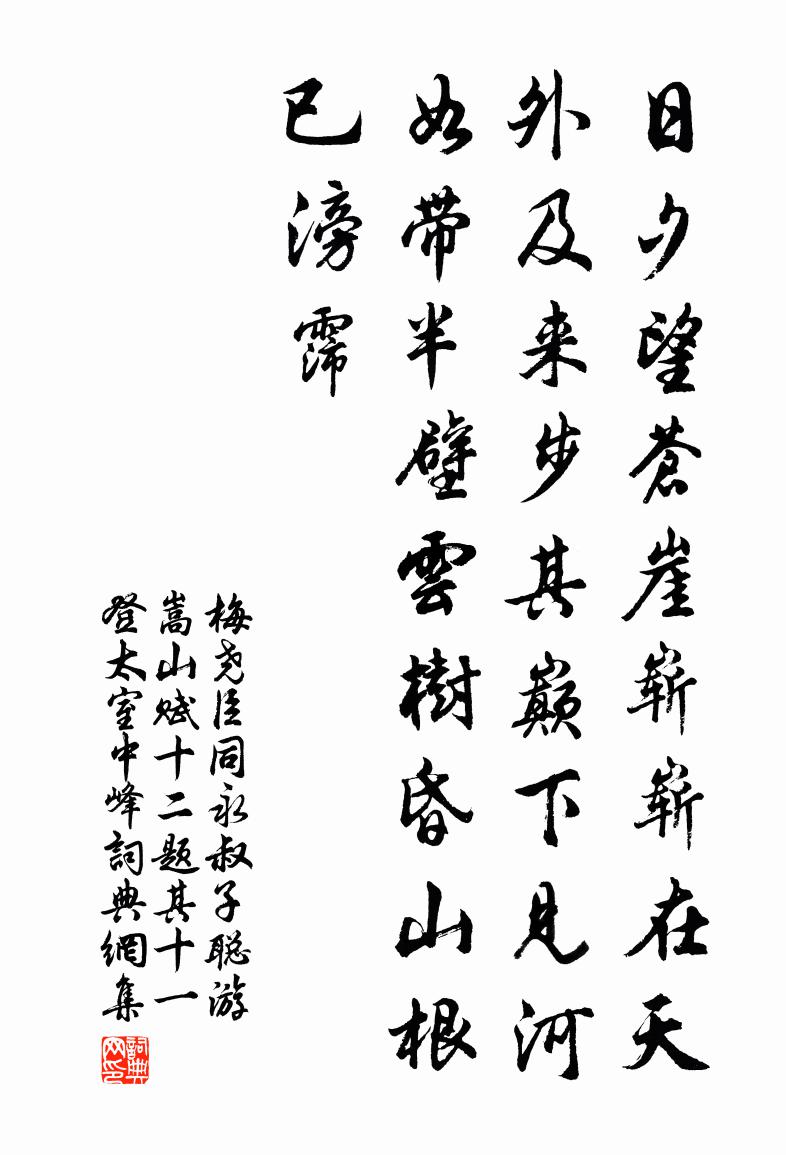 日夕望蒼崖嶄嶄在天
外及来步其巔下見河
如帶半壁雲樹昏山根
已滂霈
梅尧臣同永叔子聪游
嵩山赋十二题其十一
登太室中峰詞典網集
詞典网印